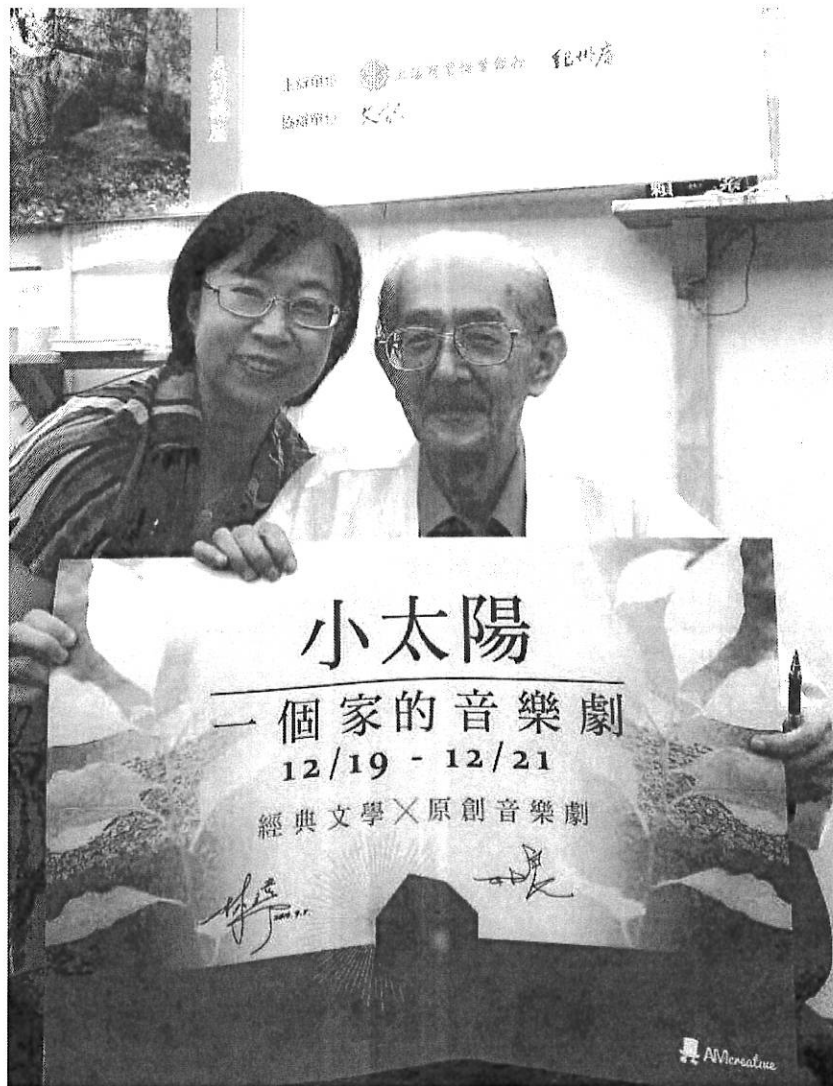 主辦單位 上海商業儲蓄銀行 紀州庵
協辦單位
小太陽
一個家的音樂劇
12/19 - 12/21
經典文學×原創音樂劇
AMcreative